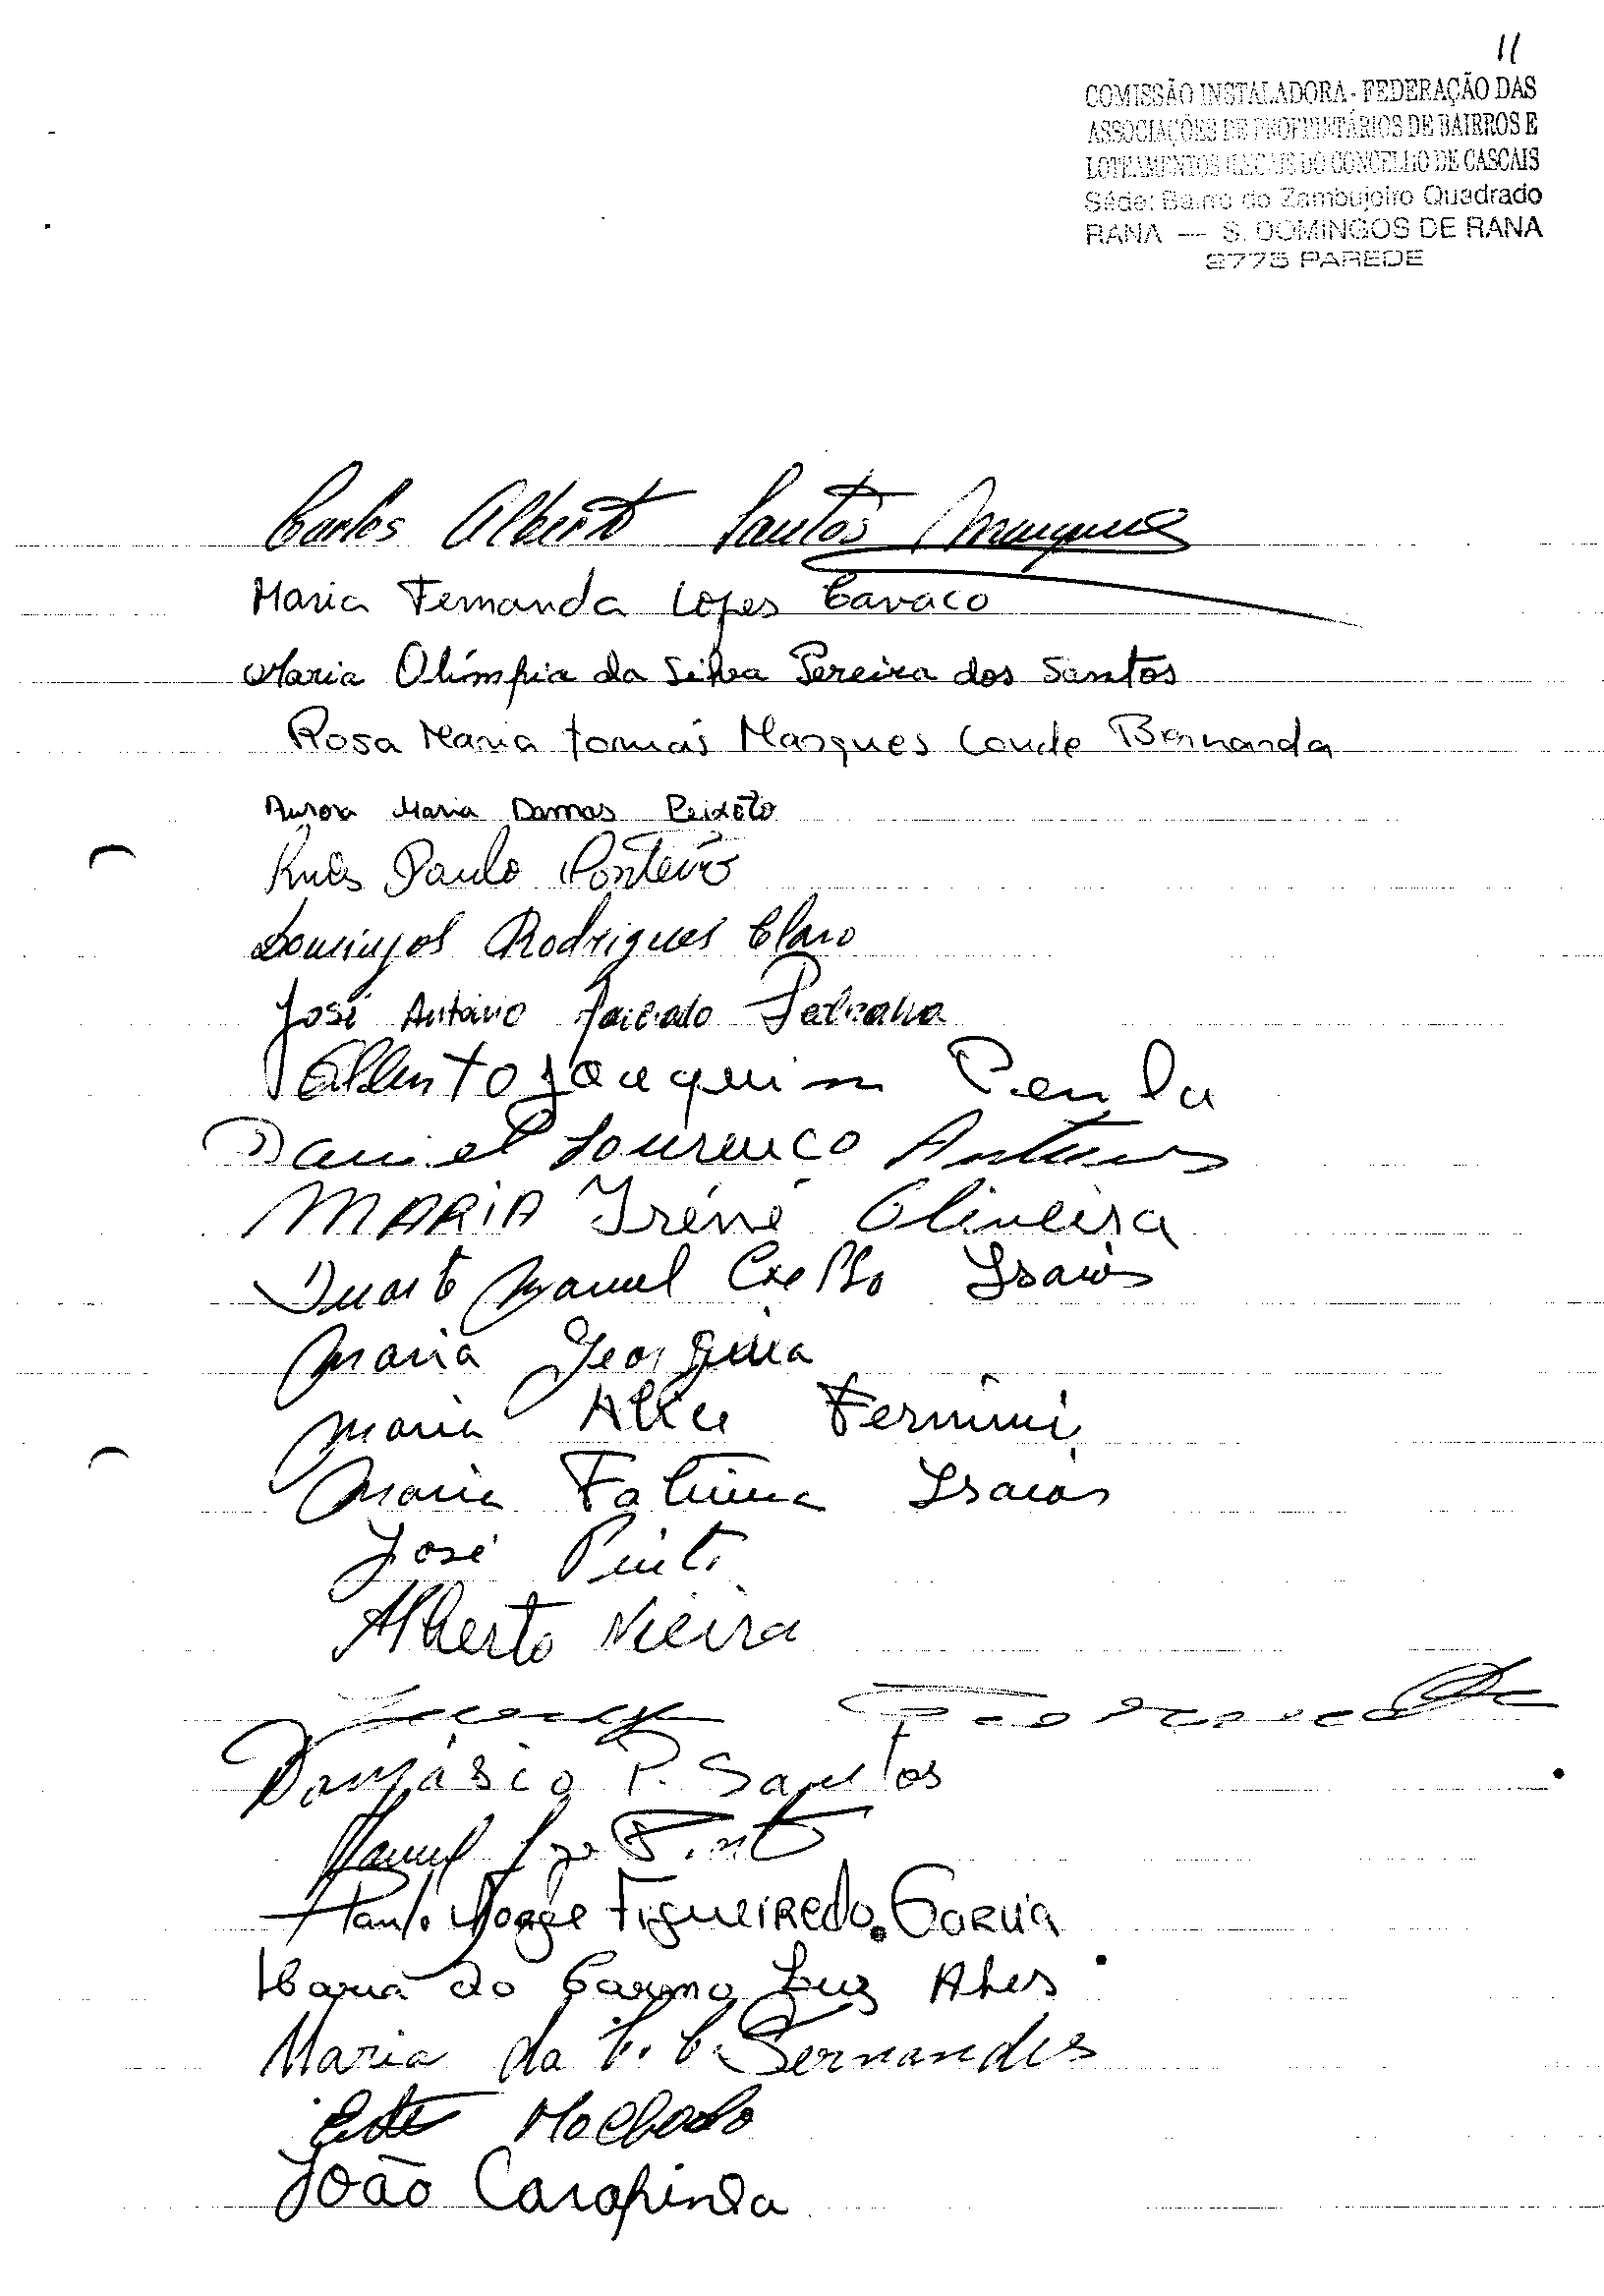 11
COMISSÃO INSTALADORA - FEDERAÇÃO DAS
ASSOCIAÇÕES DE PROPRIETÁRIOS DE BAIRROS E
LOTEAMENTOS ILEGAIS DO CONCELHO DE CASCAIS
Séde: Bairro do Zambujeiro Quadrado
RANA — S. DOMINGOS DE RANA
2775 PAREDE
Carlos Alberto Santos Marques
Maria Fernanda Lopes Cavaco
Maria Olímpia da Silva Pereira dos Santos
Rosa Maria Tomás Marques Conde Bernarda
Aurora Maria Damas Peixoto
Paulo Monteiro
Domingos Rodrigues Claro
José António
Alberto Joaquim Penla
Daniel Lourenço Antunes
MARIA Iréne Oliveira
Duarte Manuel Coelho Isaias
Maria Georgina
Maria Alice
Maria Fatima Isaias
José Pinto
Alberto Vieira
Damásio P. Santos
Manuel José Pinto
Paulo Jorge Figueiredo Garcia
Maria do Carmo Luz Alves
Maria da C. C. Fernandes
Machado
João Carapinha